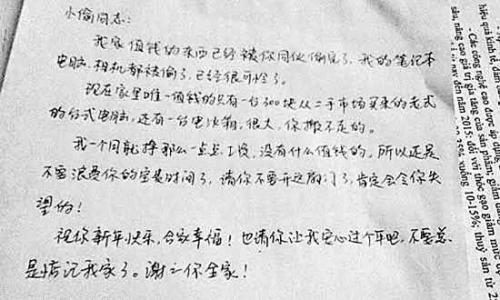 小偷同志:
我家值钱的东西已经被你同伙偷完了,我的笔记本
电脑、相机都被偷了,已经很可怜了。
现在家里唯一值钱的只有一台300块从二手市场买来的老式
的台式电脑,还有一台电冰箱,很大,你搬不走的。
我一个月就挣那么一点点工资,没有什么值钱的,所以还是
不要浪费你的宝贵时间了,请你不要开这扇门了,肯定会令你失
望的!
祝你新年快乐,合家幸福!也请你让我安心过个年吧,不要总
是惦记我家了。谢谢你全家!
hiệu quả kinh tế, đảm
- Các công nghệ cao được áp dụng
sâu, nâng cao giá trị gia tăng của sản phẩm; giảm
đến năm 2015: đối với thóc gạo giảm
xuống 10-15%; thuỷ sản từ 2